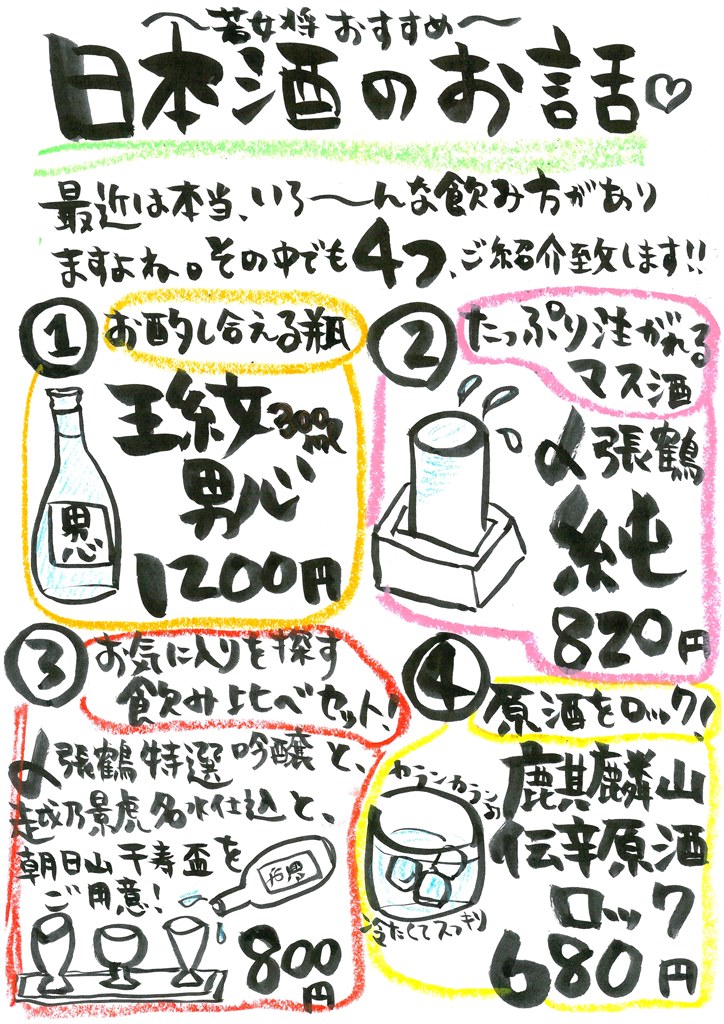 〜若女将おすすめ〜
日本酒のお話♡
最近は本当、いろ〜んな飲み方があり
ますよね。その中でも4つ、ご紹介致します!!
① お酌し合える瓶
王紋300ml
男心
1200円
男心
② たっぷり注がれる
マス酒
〆張鶴
純
820円
③ お気に入りを探す
飲み比べセット!
〆張鶴特選吟醸と、
越乃景虎名水仕込と、
朝日山千寿盃を
ご用意!
800円
④ 原酒をロック!
カランカランの
麒麟山
伝辛原酒
ロック
冷たくてスッキリ
680円